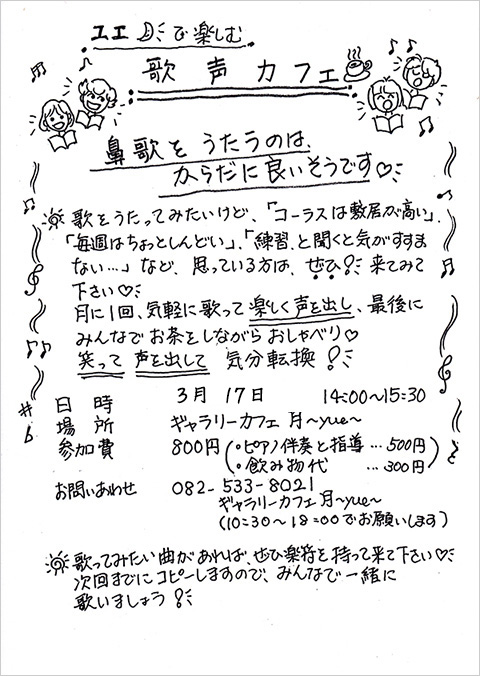 ユエ で楽しむ
歌声カフェ
鼻歌を うたうのは、
からだに良いそうです♡
歌をうたってみたいけど、「コーラスは敷居が高い」、
「毎週はちょっとしんどい」、「練習、と聞くと気がすすま
ない…」など、思っている方は、ぜひ! 来てみて
下さい♡
月に1回、気軽に歌って 楽しく声を出し、最後に
みんなでお茶をしながら おしゃべり♡
笑って 声を出して 気分転換!
日時 3月 17日 14:00〜15:30
場所 ギャラリーカフェ 月〜yue〜
参加費 800円(・ピアノ伴奏と指導 … 500円
・飲み物代 … 300円)
お問いあわせ 082-533-8021
ギャラリーカフェ月〜yue〜
(10:30〜18:00でお願いします)
歌ってみたい曲があれば、ぜひ楽符を持って来て下さい♡
次回までにコピーしますので、みんなで一緒に
歌いましょう!